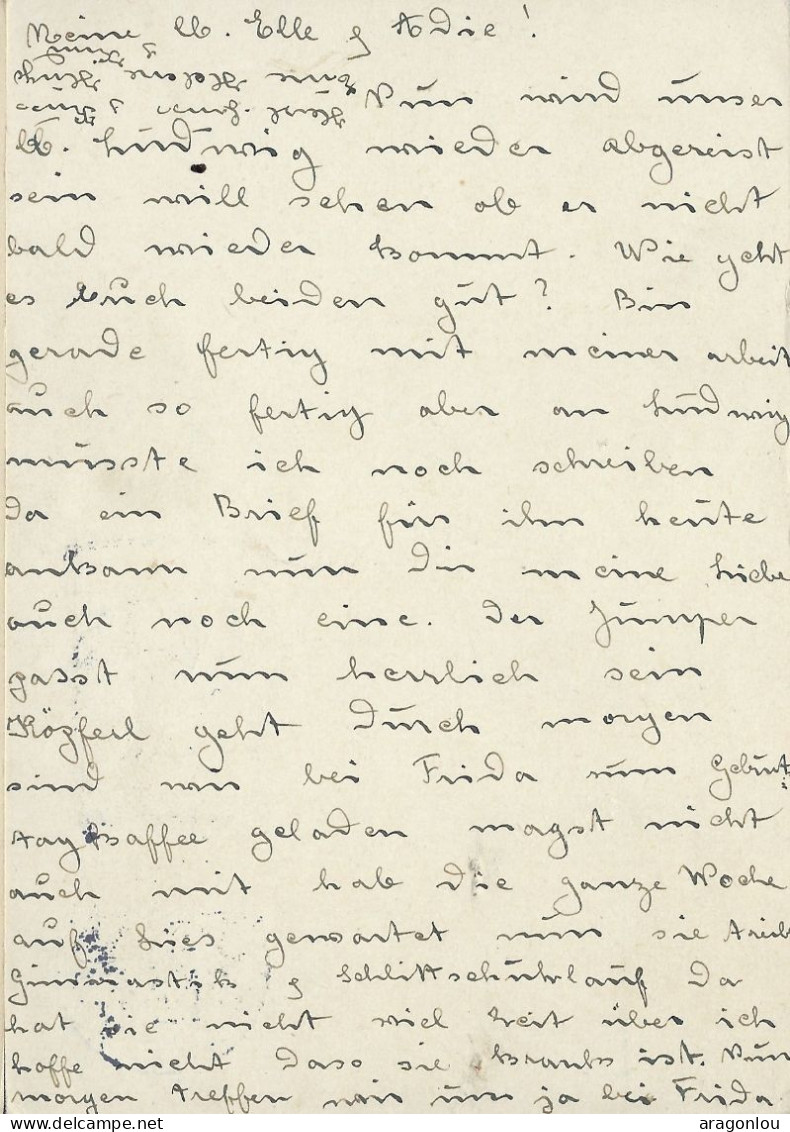 Meine lb. Elle & Adie!
Nun wird unser
lb. Ludwig wieder abgereist
sein will sehen ob er nicht
bald wieder kommt. Wie geht
es Euch beiden gut? Bin
gerade fertig mit meiner arbeit
auch so fertig aber an Ludwig
müsste ich noch schreiben
da ein Brief für ihn heute
ankam nun dir meine Liebe
auch noch eine. Der Jumper
passt nun herrlich sein
Köpferl geht durch morgen
sind wir bei Frida zum Geburts
tagkaffee geladen magst nicht
auch mit hab die ganze Woche
auf Lies gewartet nun sie treibt
Gimnastik & Schlittschuhlauf da
hat sie nicht viel Zeit über ich
hoffe nicht dass sie krank ist. Nun
morgen treffen wir uns ja bei Frida
aragonlou